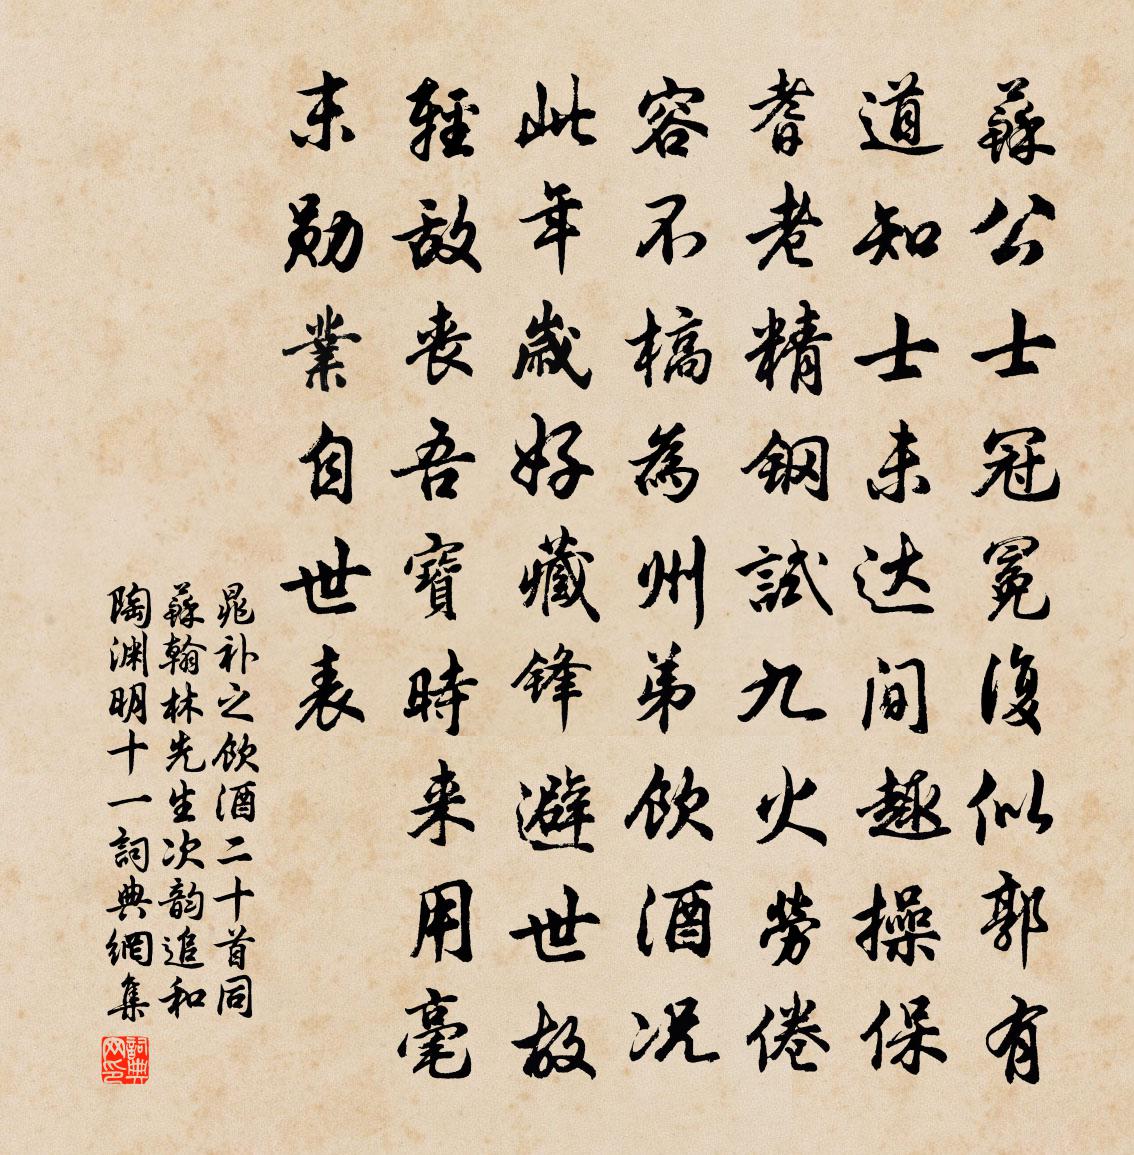 蘇公士冠冕復似郭有
道知士未达间趣操保
耆老精鋼試九火勞倦
容不槁為州弟飲酒况
此年歲好藏鋒避世故
輕敌丧吾寶時来用毫
末勋業自世表
晁补之飲酒二十首同
蘇翰林先生次韵追和
陶渊明十一詞典網集
詞典
网印